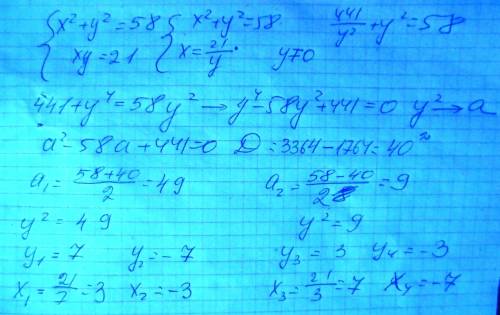 {x²+y²=58 {x²+y²=58 441/y²+y²=58
{xy=21 {x=21/y y≠0
441+y⁴=58y² → y⁴-58y²+441=0 y²→a
a²-58a+441=0 D=3364-1764=40²
a₁=(58+40)/2=49 a₂=(58-40)/2=9
y²=49 y²=9
y₁=7 y₂=-7 y₃=3 y₄=-3
x₁=21/7=3 x₂=-3 x₃=21/3=7 x₄=-7